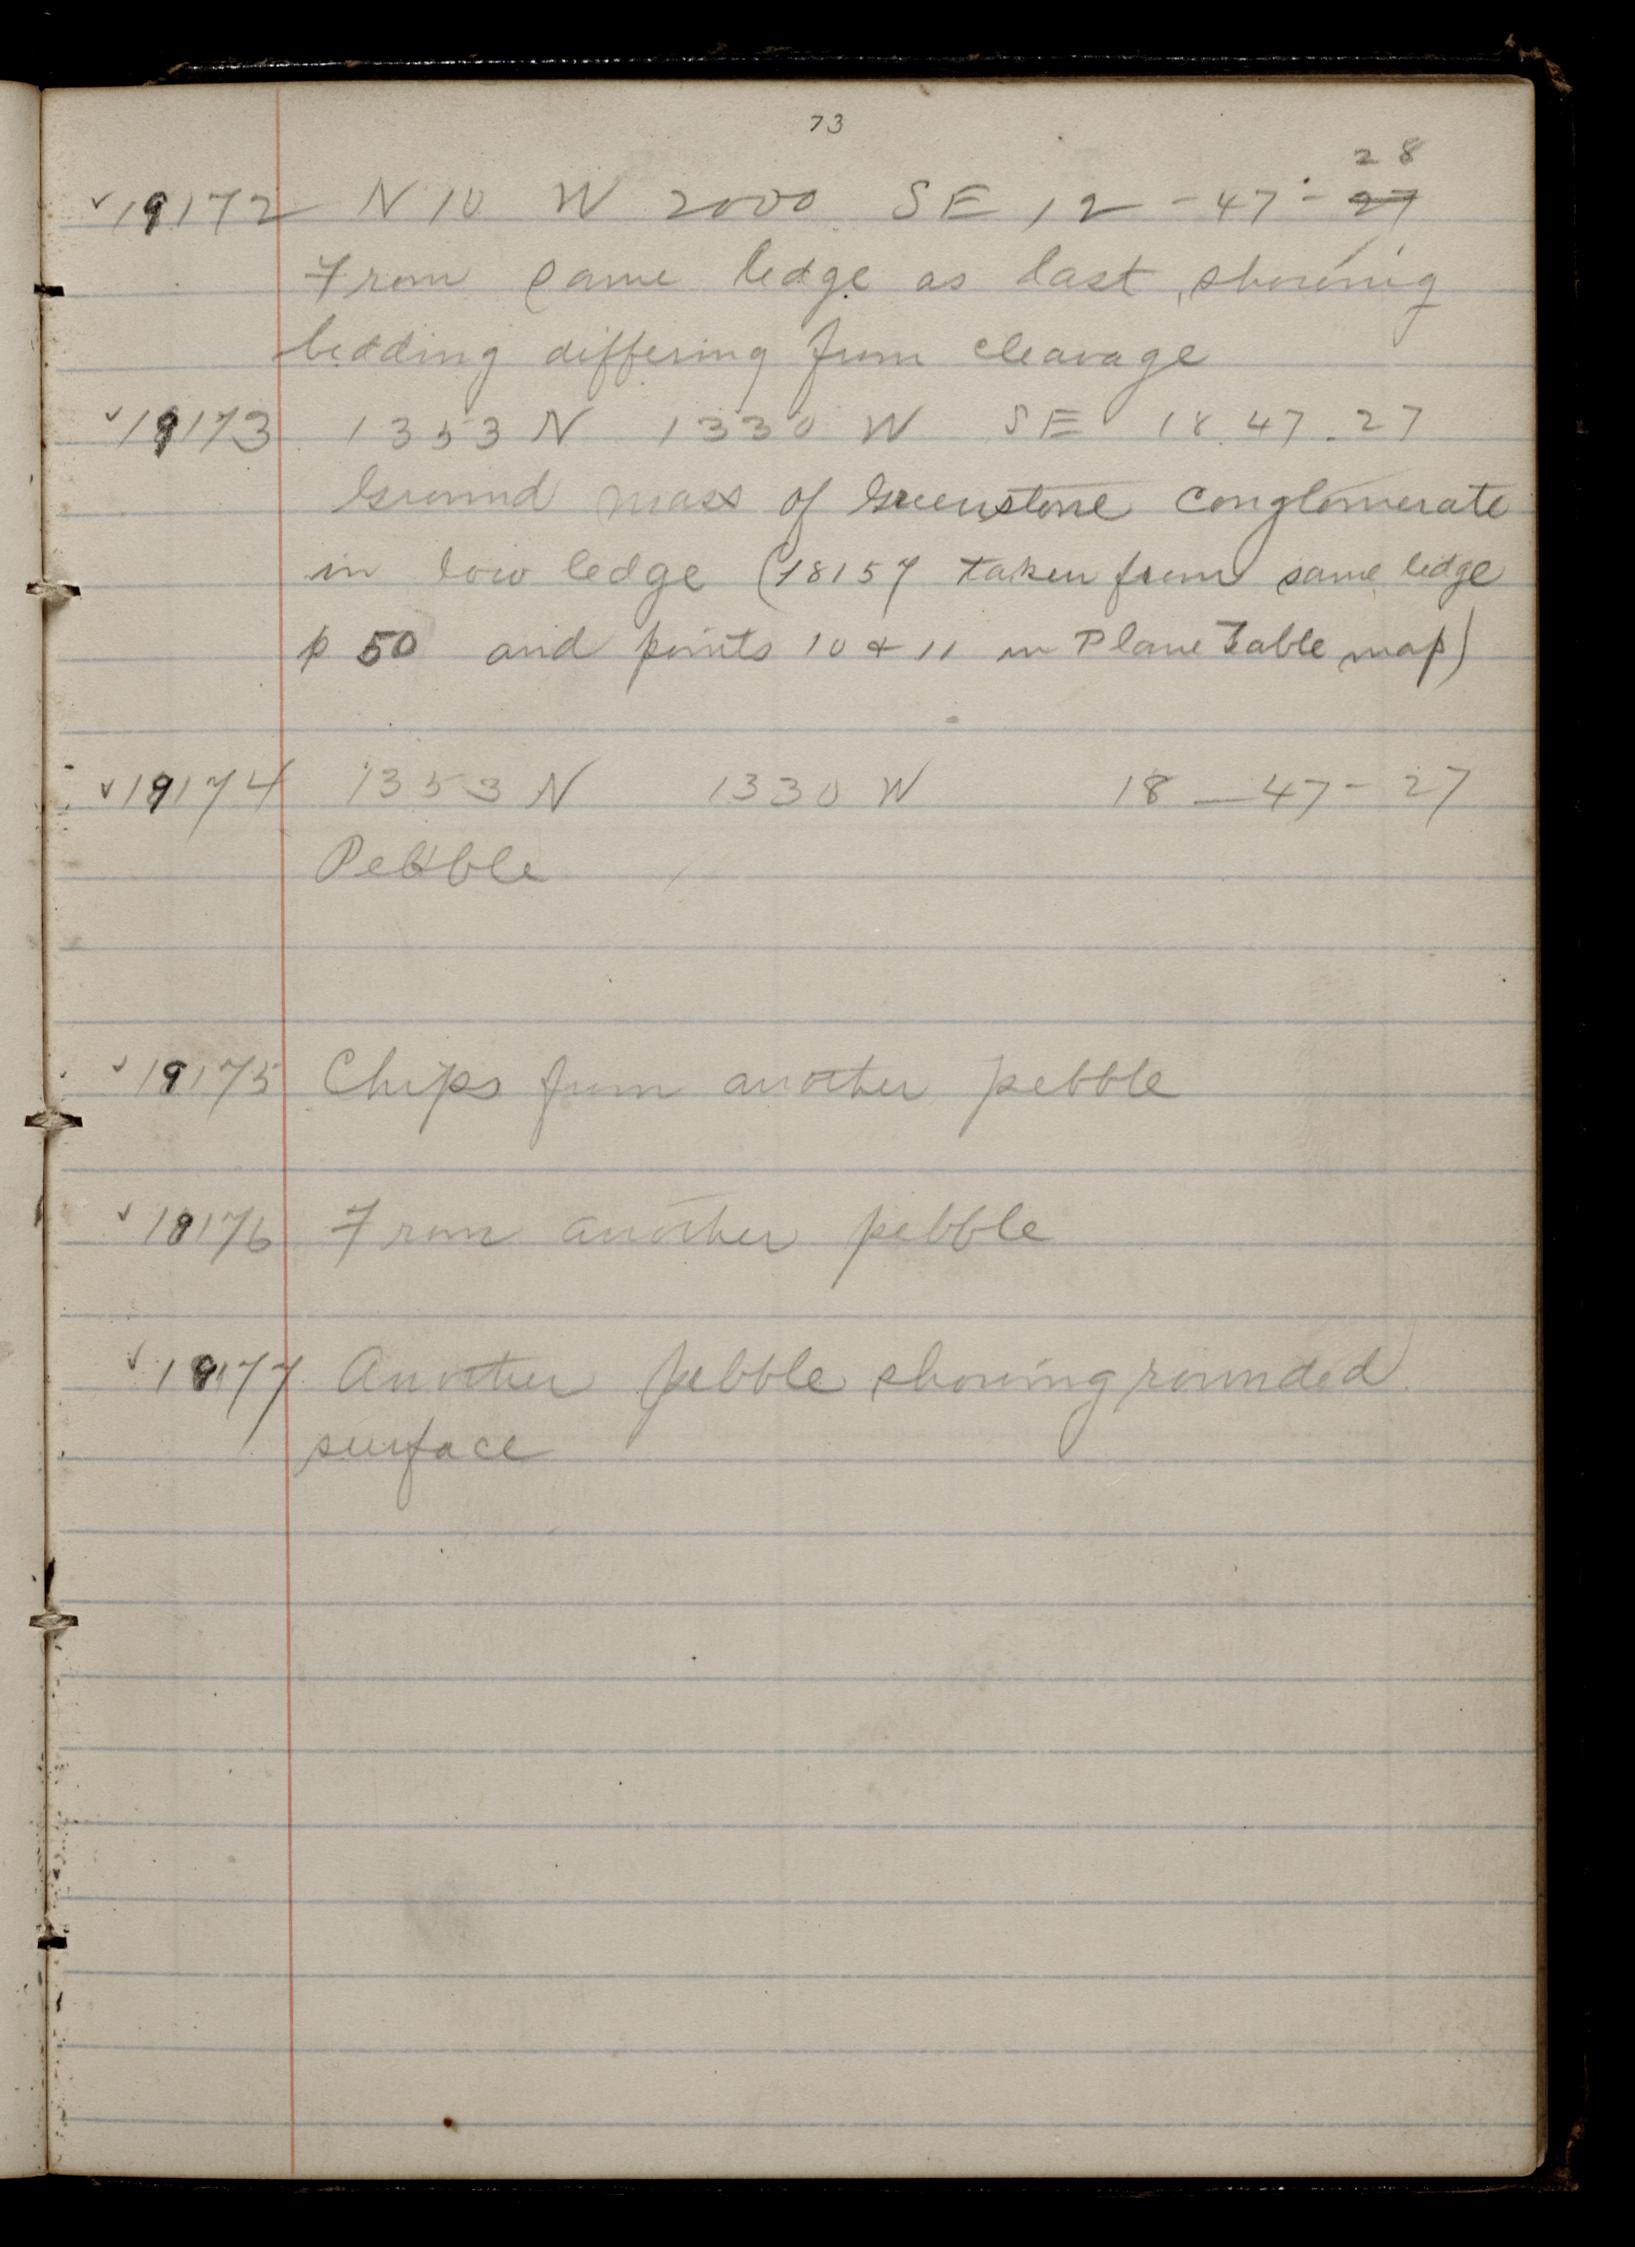 73
28
✓19172 N 10 W 2000 SE 12-47-27
From same ledge as last, showing
bedding differing from cleavage
✓19173 1353 N 1330 W SE 18.47.27
Ground mass of Greenstone Conglomerate
in low ledge (18157 taken from same ledge
p 50 and points 10 & 11 on Plane Table map)
✓19174 1353 N 1330 W 18-47-27
Pebble
✓19175 Chips from another pebble
✓19176 From another pebble
✓19177 Another pebble showing rounded
surface